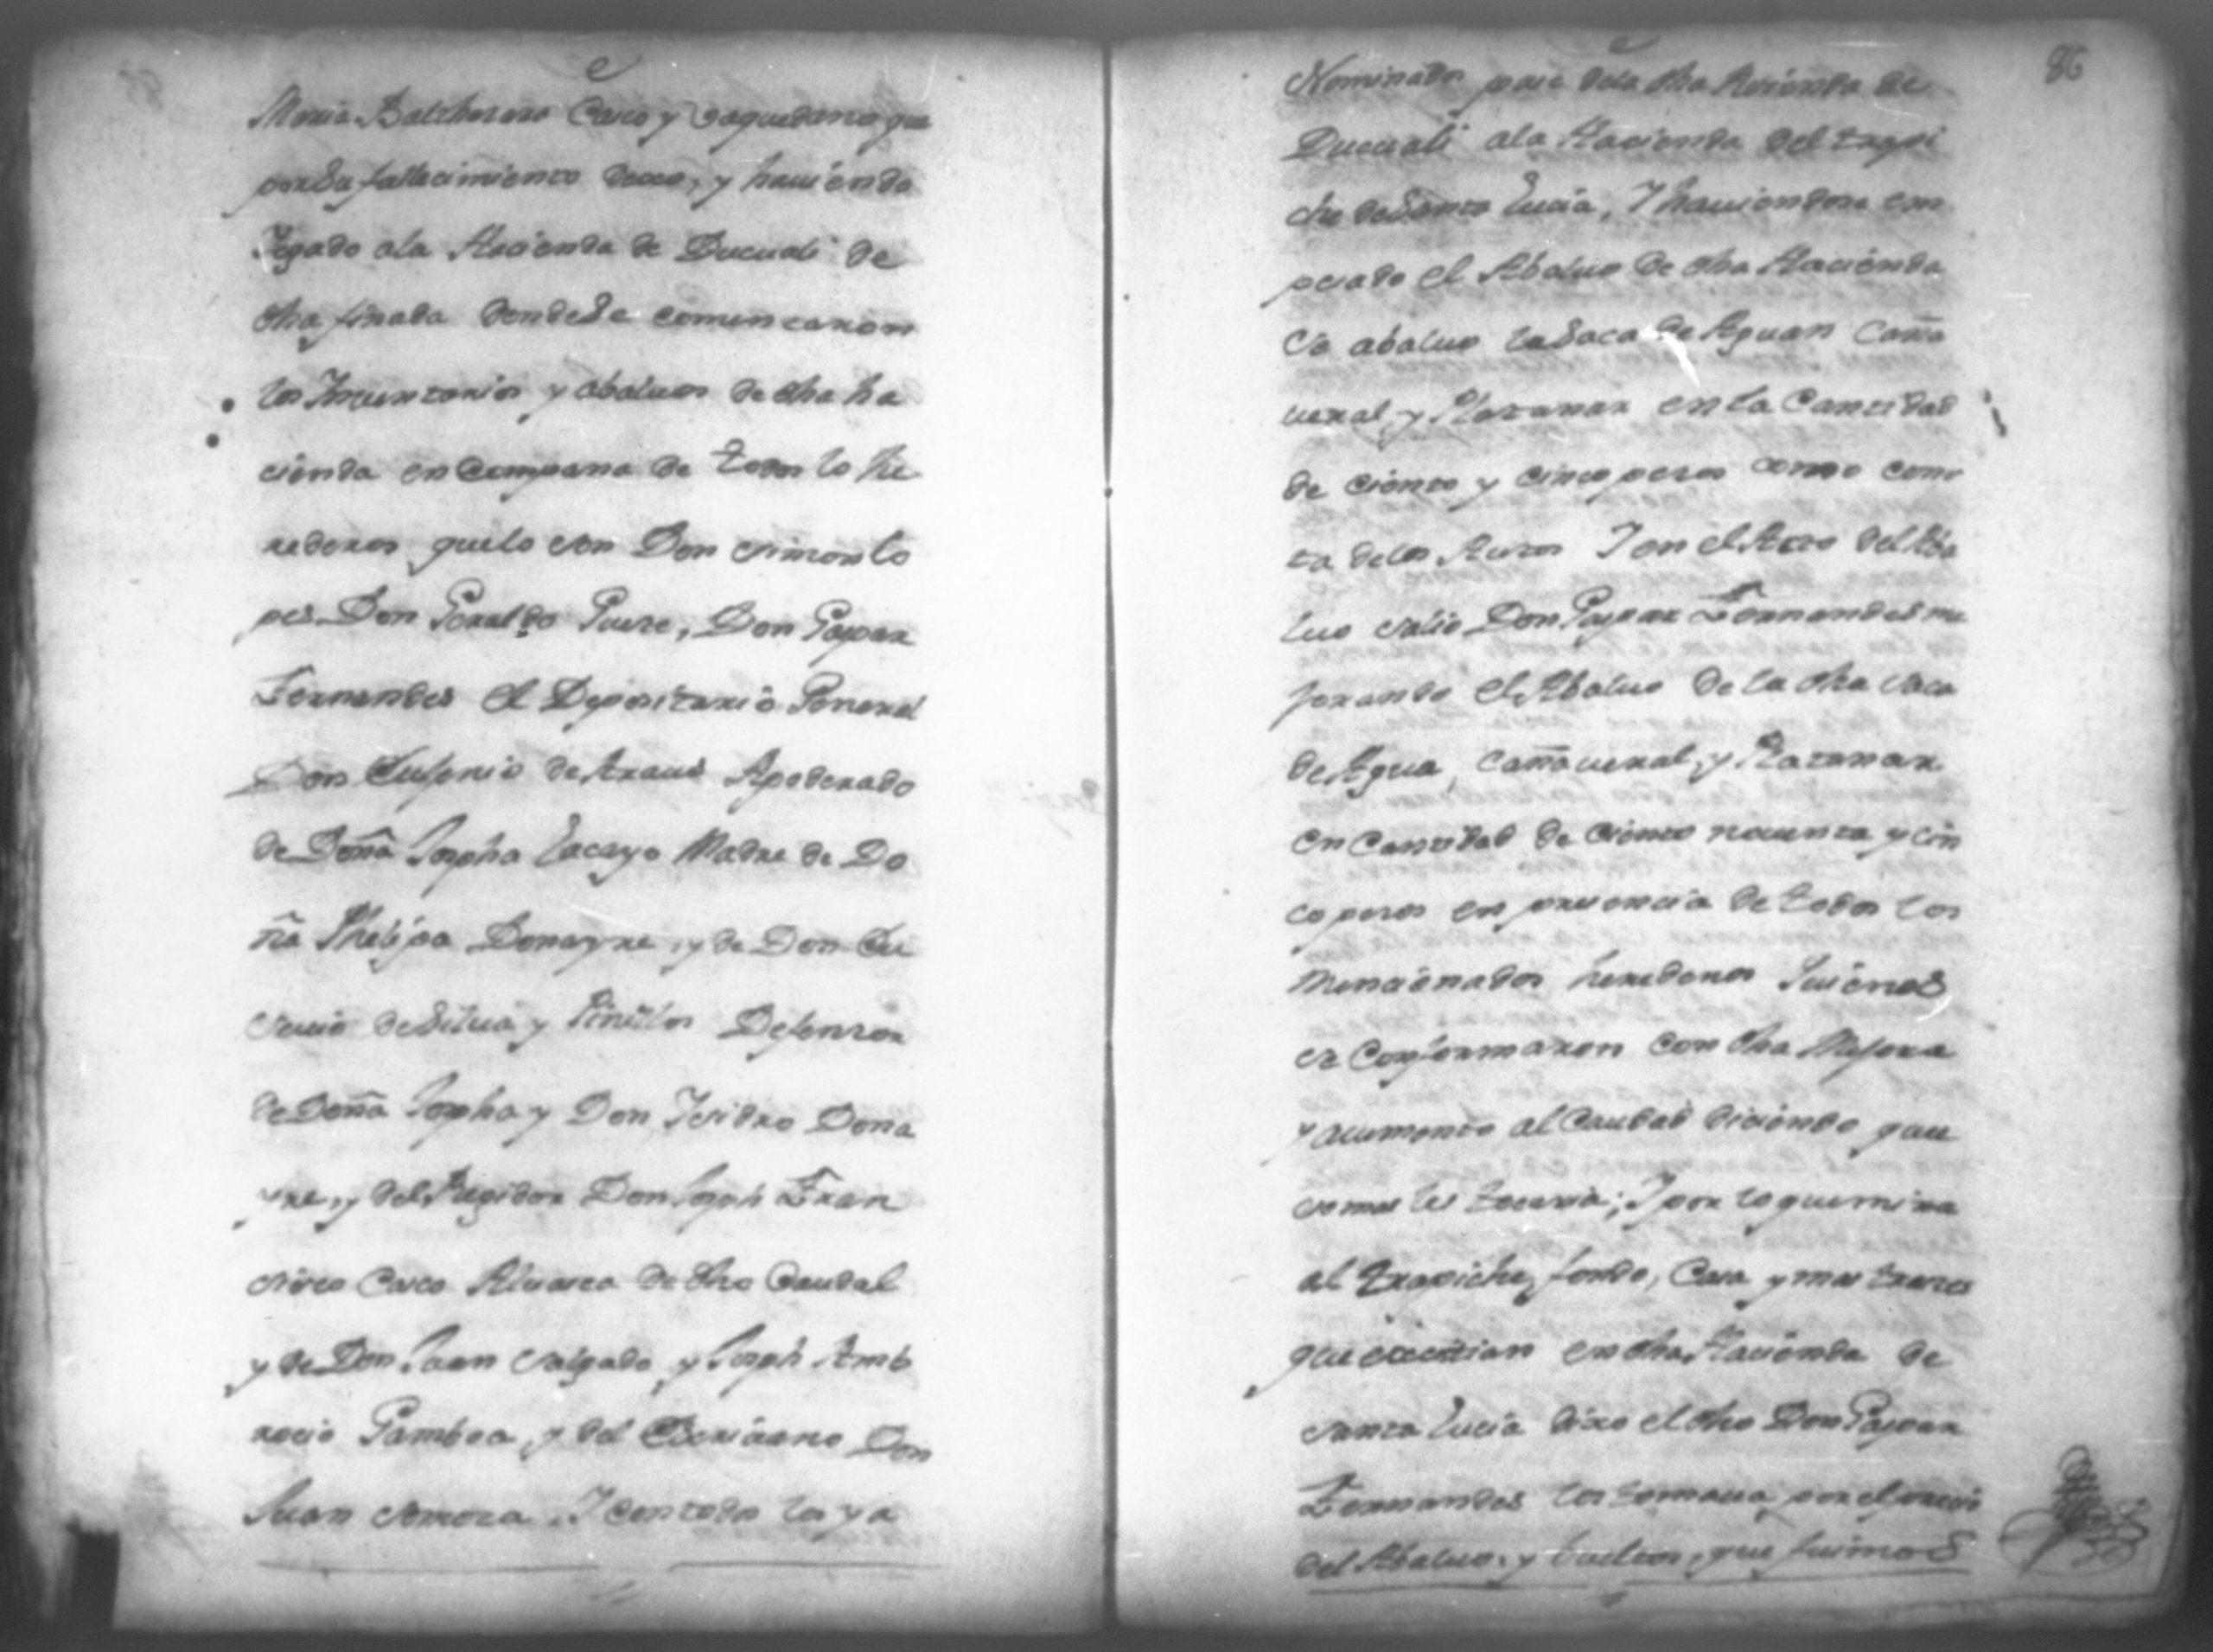 Maria Balthesara Casco y Vaquedano que
por su fallecimiento dexo, y haviendo
llegado ala Hacienda de Ducuali de
dha finada donde se comensaron
los Imventarios y abaluos de dha ha
cienda en Compania de todos lo he
rederos quelo son Don Simon Lo
pes Don Geraldo Puire, Don Gaspar
Fernandes el Depositario General
Don Eusenio de Araus Apoderado
de Doña Josepha Lacayo Madre de Do
ña Phelipa Donayre, y de Don Eu
sevio de Silua y Pinillos Defensor
de Doña Josepha y Don Ysidro Dona
yre, y del Rexidor Don Joseph Fran
sisco Casco Albacea de dho Caudal
y de Don Juan Salgado y Joseph Amb
rocio Gamboa y del Escriuano Don
Juan Somoza, Y con todos los ya
86
Nominados pase dela dha Hasienda de
Ducuali ala Hacienda del trapi
che de Santa Lucia, Y hauiendose em
pesado el Abaluo de dha Hacienda
Se abaluo la Saca de Aguan Caña
ueral y Platanar en la Cantidad
de Ciento y Cinco pesos como cons
ta delos Autos Y en el Acto del Aba
luo Salio Don Gaspar Fernandes me
jorando el Abaluo de la dha Saca
de Agua, Cañaueral, y Platanar
en Cantidad de Ciento nouenta y Cin
co pesos en precencia de todos los
mencionados herederos quienes
se Conformaron con dha Mejora
y aumento al Caudal diciendo que
so mas les tocaria; Y por lo que mira
al trapiche, fondo, Casa y mas trastes
que existian en dha Hacienda de
Santa Lucia dixo el dho Don Gaspar
Fernandes los tomaua por el precio
del Abaluo, y bueltos, que fuimos